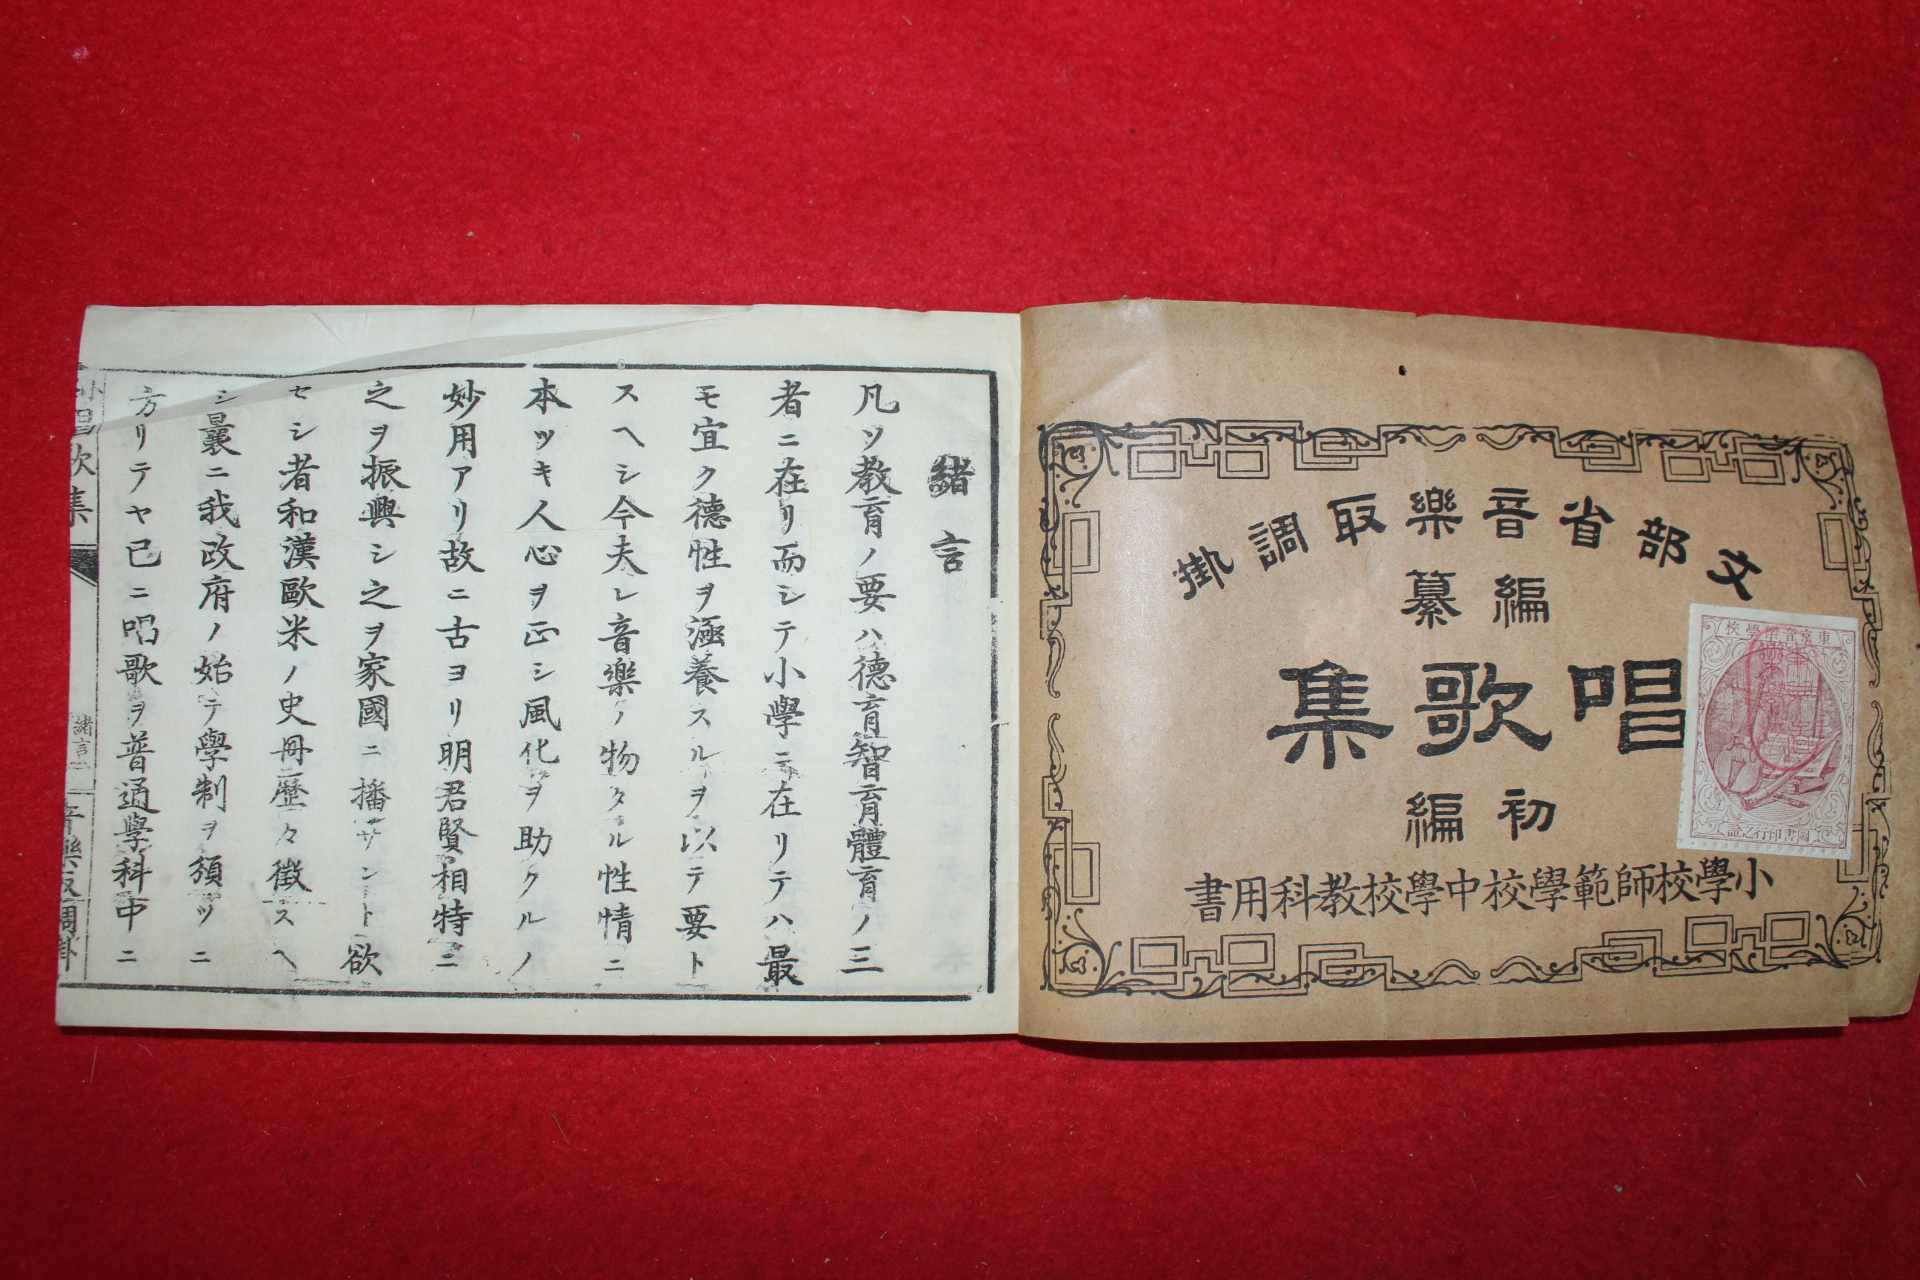 文部省音樂取調掛
編纂
唱歌集
初編
小學校師範學校中學校敎科用書
東京音樂學校
圖書印行之證
緖言
凡ソ教育ノ要ハ德育智育體育ノ三
者ニ在リ而シテ小學ニ在リテハ最
モ宜ク德性ヲ涵養スルヲ以テ要ト
スヘシ今夫レ音樂ノ物タル性情ニ
本ツキ人心ヲ正シ風化ヲ助クルノ
妙用アリ故ニ古ヨリ明君賢相特ニ
之ヲ振興シ之ヲ家國ニ播サント欲
セシ者和漢歐米ノ史冊歷々徵スヘ
シ曩ニ我政府ノ始テ學制ヲ頒ツニ
方リテヤ已ニ唱歌ヲ普通學科中ニ
唱歌集
緖言
音樂取調掛